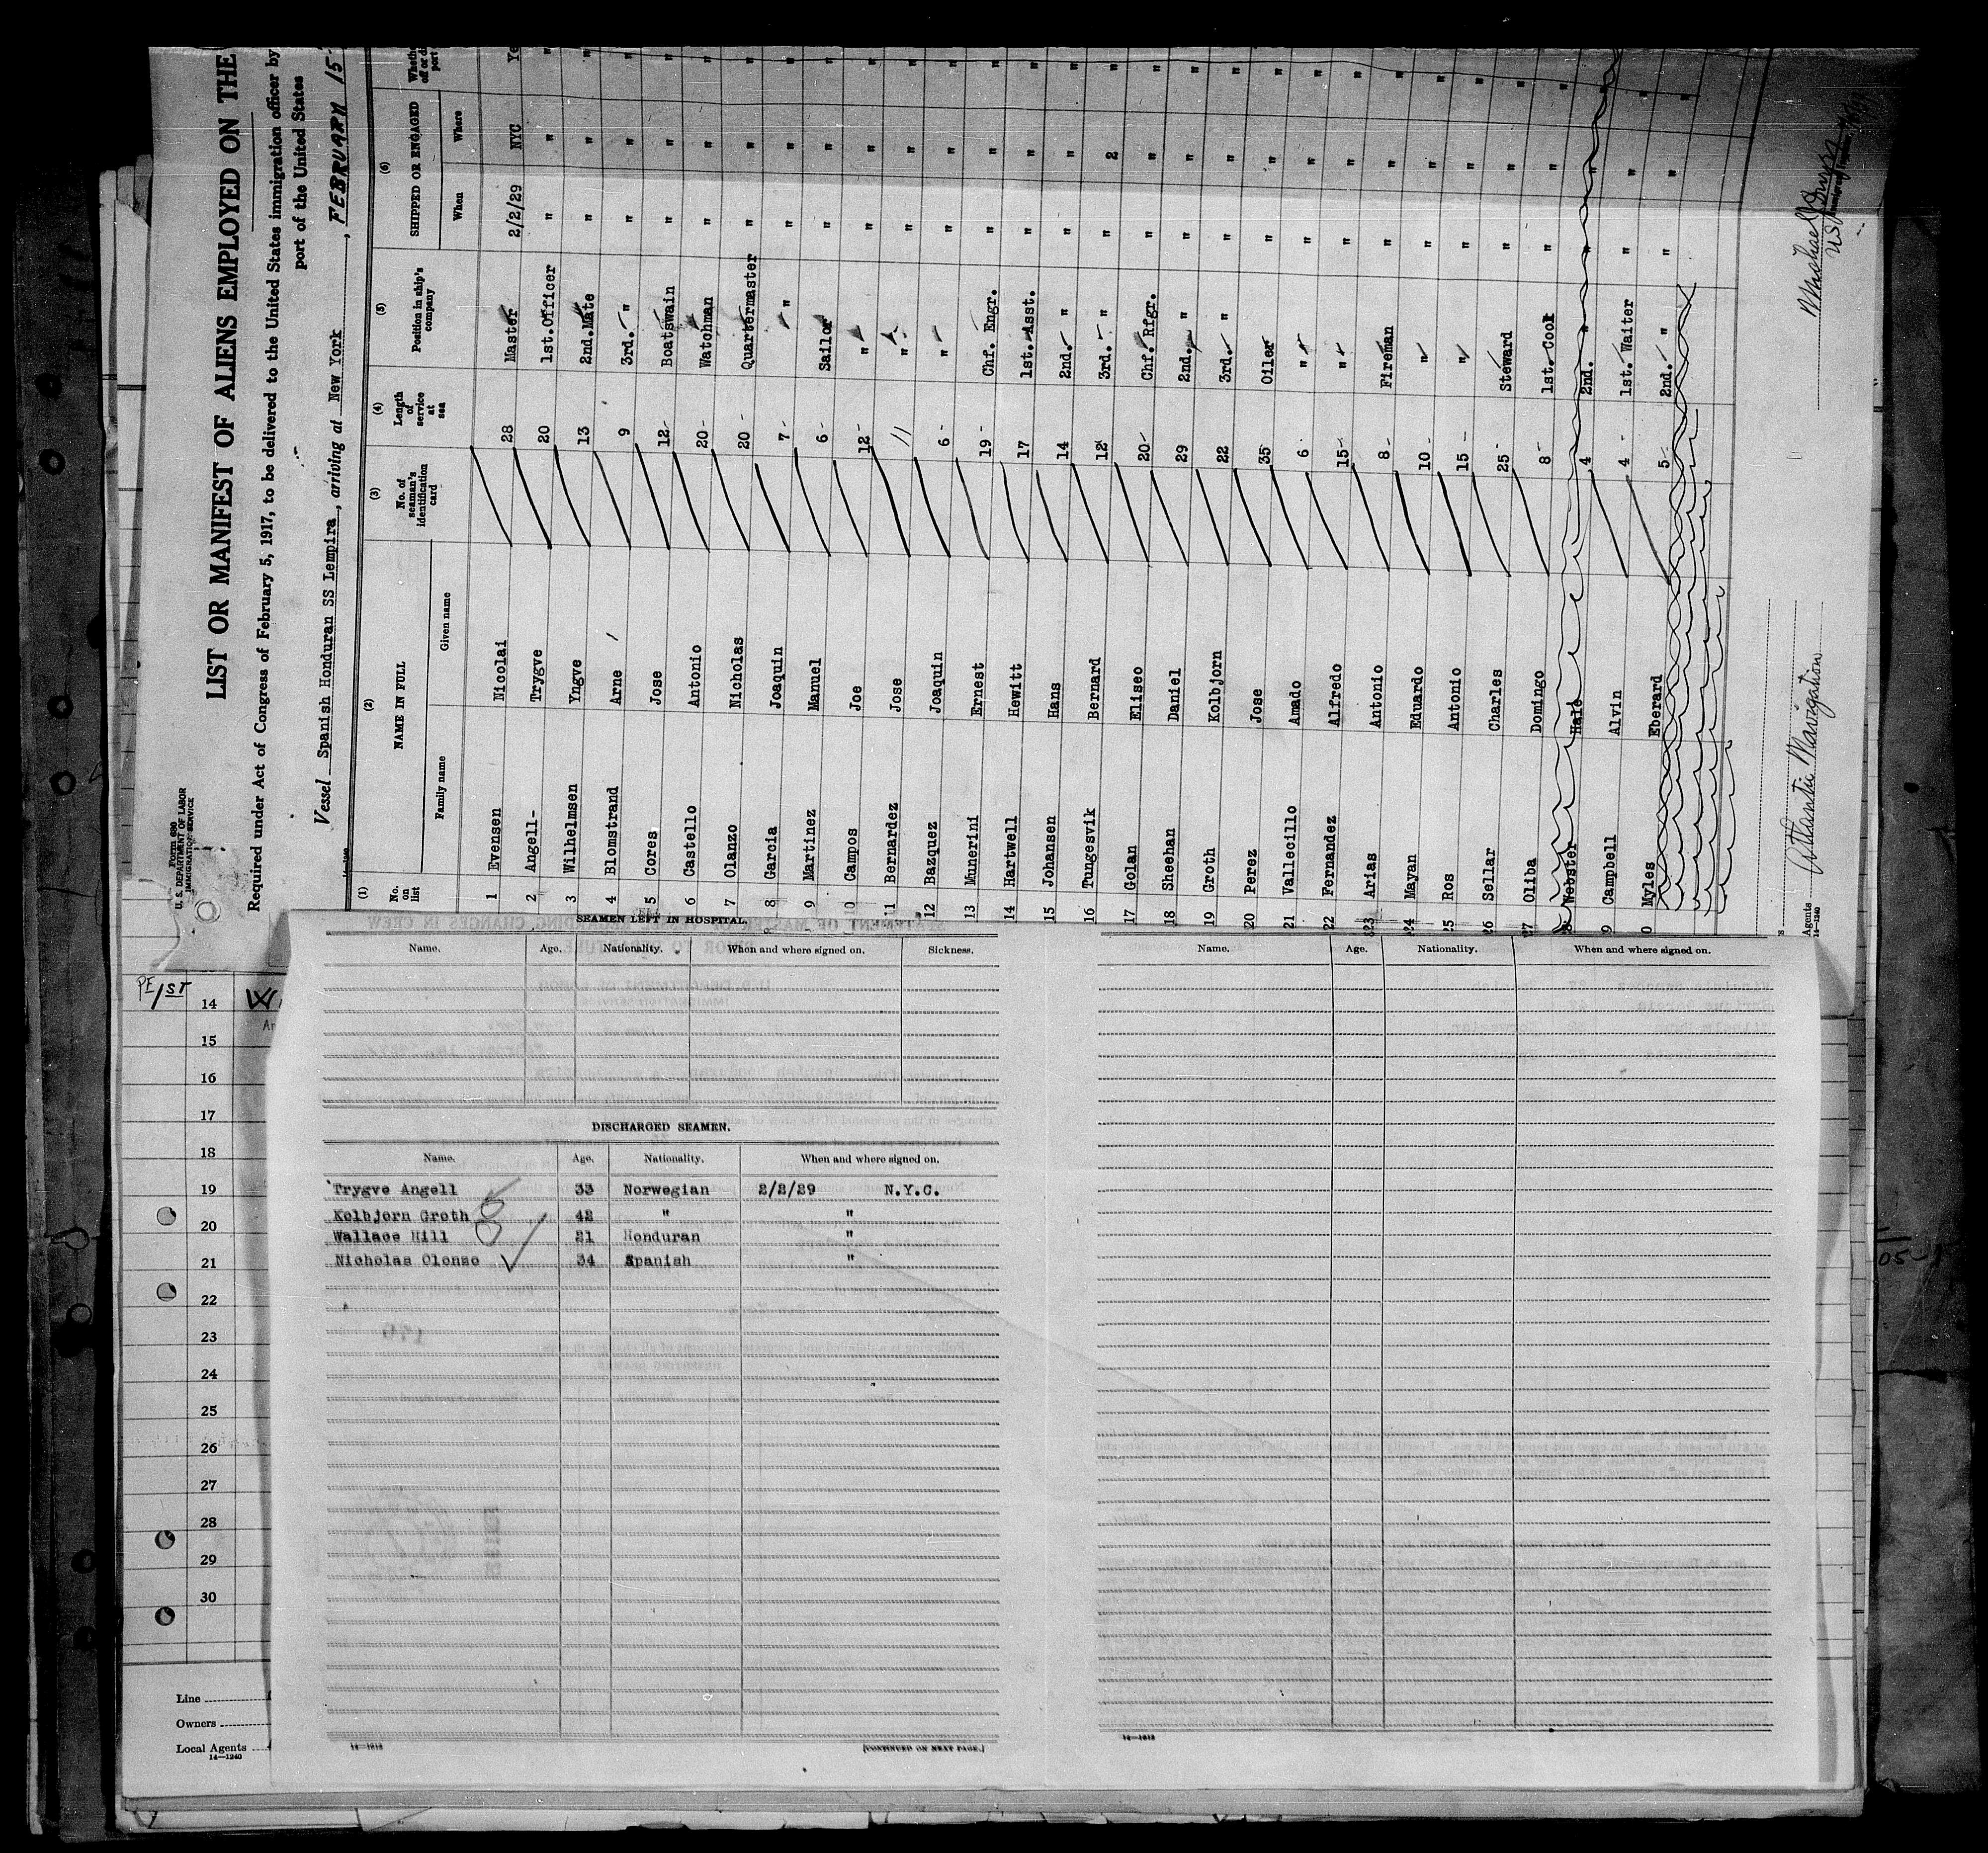 Form 680
U. S. DEPARTMENT OF LABOR
IMMIGRATION SERVICE
LIST OR MANIFEST OF ALIENS EMPLOYED ON THE
Required under Act of Congress of February 5, 1917, to be delivered to the United States immigration officer by
port of the United States
Vessel Spanish Honduran SS Lempira, arriving at New York, FEBRUARY 15
(1) (2) (3) (4) (5) (6)
No. on list NAME IN FULL No. of seaman's identification card Length of service at sea Position in ship's company SHIPPED OR ENGAGED
Family name Given name When Where
1 Evensen Nicolai 28 Master 2/2/29 NYC Ye
2 Angell- Trygve 20 1st.Officer " " "
3 Wilhelmsen Yngve 13 2nd.Mate " " "
4 Blomstrand Arne 9 3rd. " " " "
5 Cores Jose 12- Boatswain " " "
6 Castello Antonio 20- Watchman " " "
7 Olanzo Nicholas 20 Quartermaster " " "
8 Garcia Joaquin 7- " " " " "
9 Martinez Manuel 6- Sailor " " "
10 Campos Joe 12- " " " "
11 Bernardez Jose 11 " " " "
12 Bazquez Joaquin 6- " " " "
13 Munerini Ernest 19- Chf. Engr. " " "
14 Hartwell Hewitt 17 1st. Asst. " " "
15 Johansen Hans 14 2nd. " " " "
16 Tungesvik Bernard 12 3rd. " " 2 "
17 Golan Eliseo 20- Chf. Rfgr. " " "
18 Sheehan Daniel 29 2nd. " " " "
19 Groth Kolbjorn 22 3rd. " " " "
20 Perez Jose 35 Oiler " " "
21 Vallecillo Amado 6- " " " "
22 Fernandez Alfredo 15- " " " "
23 Arias Antonio 8- Fireman " " "
24 Mayan Eduardo 10- " " " "
25 Ros Antonio 15- " " " "
26 Sellar Charles 25- Steward " " "
27 Oliba Domingo 8- 1st. Cook " " "
Webster 4 2nd. " " " "
9 Campbell Alvin 4- 1st. Waiter " " "
0 Myles Eberard 5- 2nd. " " " "
Agents Atlantic Navigation
14-1240
SEAMEN LEFT IN HOSPITAL.
Name. Age. Nationality. When and where signed on. Sickness.
DISCHARGED SEAMEN.
Name. Age. Nationality. When and where signed on.
Trygve Angell 33 Norwegian 2/2/29 N.Y.C.
Kolbjorn Groth 42 " "
Wallace Hill 21 Honduran "
Nicholas Olonzo 34 Spanish "
14—1213
[CONTINUED ON NEXT PAGE.]
Name. Age. Nationality. When and where signed on.
14—1213
PE/1ST
14
15
16
17
18
19
20
21
22
23
24
25
26
27
28
29
30
Line
Owners
Local Agents
14—1240